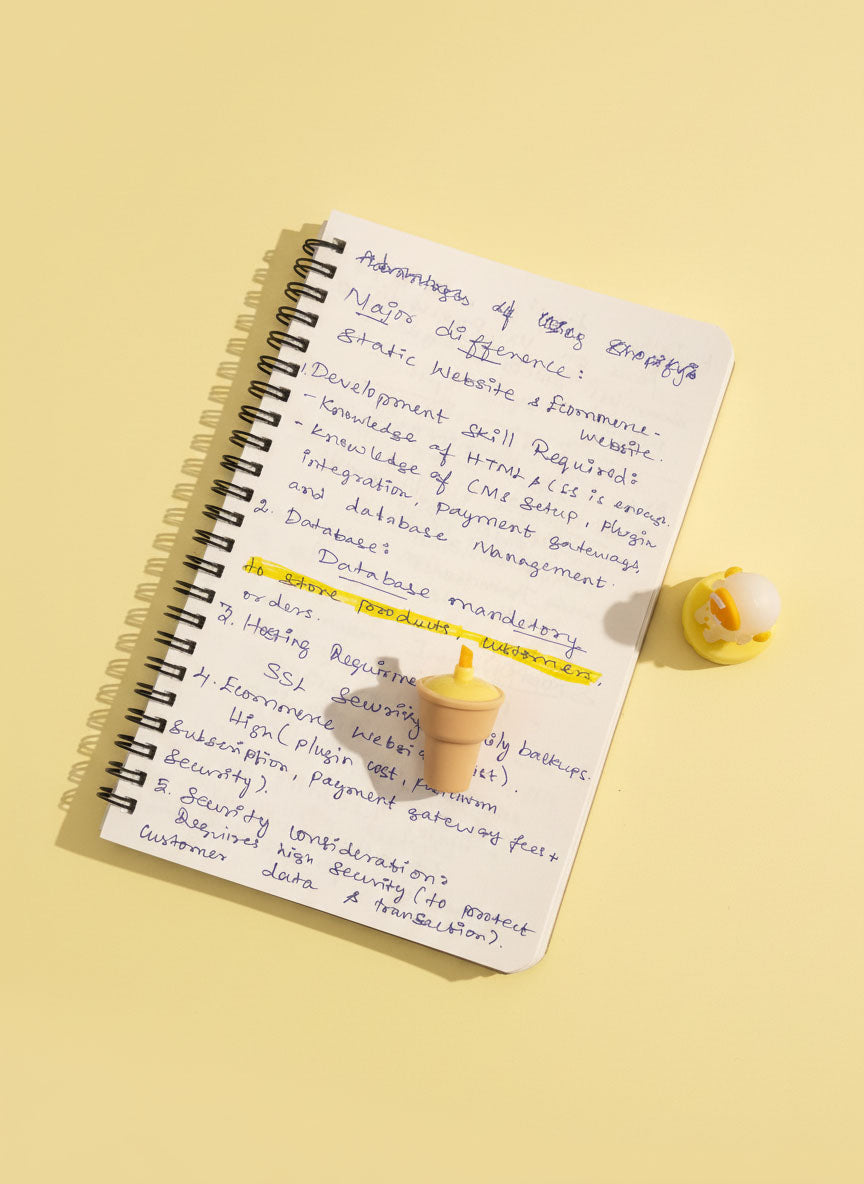 Advantages of Using Shopify
Major difference:
Static Website & Ecommerce
website.
1. Development Skill Required:
- Knowledge of HTML & CSS is enough.
- Knowledge of CMS Setup, Plugin
integration, payment gateways,
and database Management.
2. Database:
Database mandetory
to store products, customers,
orders.
3. Hosting Requirme
SSL Security ily backups.
4. Ecommerce Websi ist).
High (Plugin cost, Platform
Subscription, Payment gateway fees +
Security).
5. Security Consideration:
Requires high Security (to protect
Customer data & transaction).